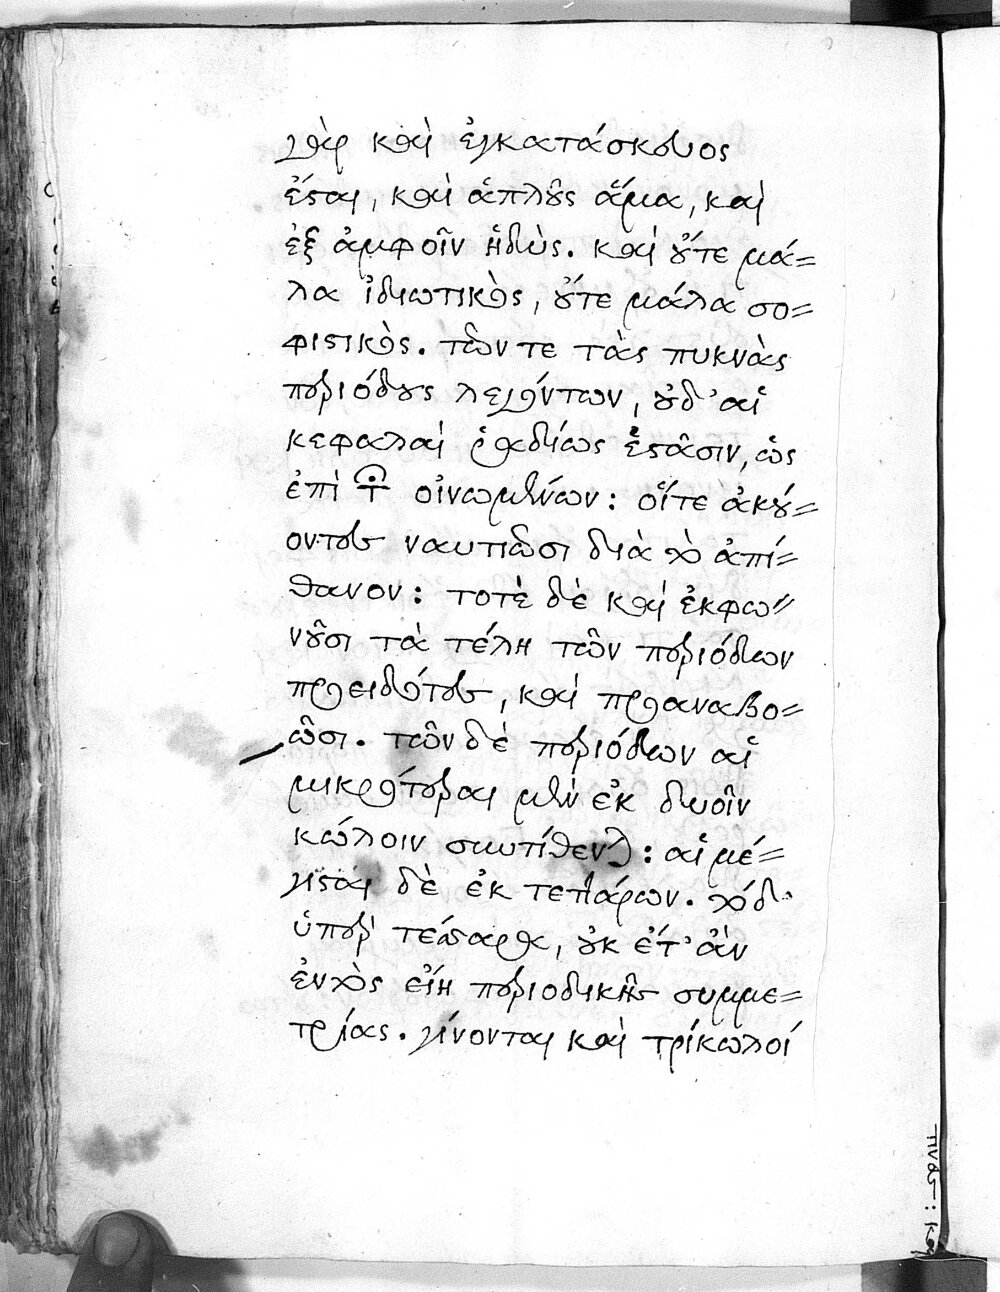 γὰρ καὶ ἐγκατάσκευος
ἔσται, καὶ ἁπλοῦς ἅμα, καὶ
ἐξ ἀμφοῖν ἡδὺς. καὶ οὔτε μά=
λα ἰδιωτικὸς, οὔτε μάλα σο=
φιστικὸς. τῶν τε τὰς πυκνὰς
περιόδους λεγόντων, οὐδ' αἱ
κεφαλαὶ ῥαδίως ἑστᾶσιν, ὡς
ἐπὶ τῶν οἰνωμένων: οἵτε ἀκού=
οντες ναυτιῶσι διὰ τὸ ἀπί=
θανον: τοτὲ δὲ καὶ ἐκφω=
νοῦσι τὰ τέλη τῶν περιόδων
προειδότες, καὶ προαναβο=
ῶσι. τῶν δὲ περιόδων αἱ
μικρότεραι μὲν ἐκ δυοῖν
κώλοιν συντίθενται: αἱ μέ=
γισται δὲ ἐκ τεττάρων. τὸ δ'
ὑπὲρ τέσσαρα, οὐκ ἔτ' ἂν
ἐντὸς εἴη περιοδικῆς συμμε=
τρίας. γίνονται καὶ τρίκωλοί
τινες: καὶ